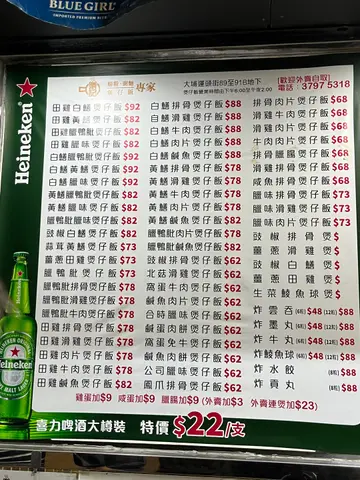 BLUE GIRL
IMPORTED PREMIUM BEER
Heineken
專家
大埔運頭街89至91B地下
煲仔飯營業時間由下午6:00至上午2:00
(歡迎外賣自取)
電話:3797 5318
田雞白鱔煲仔飯$92
田雞黃鱔煲仔飯$82
田雞臘鴨髀煲仔飯$82
田雞臘味煲仔飯$82
白鱔臘鴨髀煲仔飯$92
白鱔黃鱔煲仔飯$92
白鱔臘味煲仔飯$92
黃鱔臘鴨髀煲仔飯$82
黃鱔臘味煲仔飯$82
臘鴨髀臘味煲仔飯$82
豉椒白鱔煲仔飯$82
蒜茸黃鱔煲仔飯$73
薑蔥田雞煲仔飯$73
臘鴨髀煲仔飯$73
臘鴨髀排骨煲仔飯$78
臘鴨髀滑雞煲仔飯$78
臘鴨髀肉片煲仔飯$78
臘鴨髀牛肉煲仔飯$78
田雞排骨煲仔飯$78
田雞滑雞煲仔飯$78
田雞肉片煲仔飯$78
田雞牛肉煲仔飯$78
田雞鹹魚煲仔飯$82
白鱔排骨煲仔飯$88
白鱔滑雞煲仔飯$88
白鱔牛肉煲仔飯$88
白鱔肉片煲仔飯$88
白鱔鹹魚煲仔飯$88
黃鱔排骨煲仔飯$78
黃鱔滑雞煲仔飯$78
黃鱔牛肉煲仔飯$78
黃鱔肉片煲仔飯$78
黃鱔鹹魚煲仔飯$82
臘鴨髀肉片煲仔飯$78
臘鴨髀鹹魚煲仔飯$82
北菇滑雞煲仔飯$62
窩蛋牛肉煲仔飯$62
鹹魚肉片煲仔飯$62
合時臘味煲仔飯$62
鹹蛋肉餅煲仔飯$62
窩蛋免牛煲仔飯$62
鹹魚肉餅煲仔飯$62
公司臘味煲仔飯$62
鳳爪排骨煲仔飯$62
排骨肉片煲仔飯$68
滑雞肉片煲仔飯$68
牛肉肉片煲仔飯$68
排骨滑雞煲仔飯$68
排骨臘腸煲仔飯$68
滑雞排骨煲仔飯$68
鹹魚排骨煲仔飯$68
臘味排骨煲仔飯$73
臘味滑雞煲仔飯$73
臘味肉片煲仔飯$73
豉椒排骨煲$
薑蔥滑雞煲$
豉椒白鱔煲$
薑蔥田雞煲$
生菜鯪魚球煲$
炸雲吞(4粒)$48(12粒)$88
炸墨丸(4粒)$48(8粒)$88
炸牛丸(4粒)$48(8粒)$88
炸鯪魚球(4粒)$48(8粒)$88
炸水餃(8粒)$88
炸貢丸(8粒)$88
雞蛋加$9 咸蛋加$9 臘腸加$9 (外賣加$3 外賣連煲加$23)
喜力啤酒大樽裝 特價$22/支